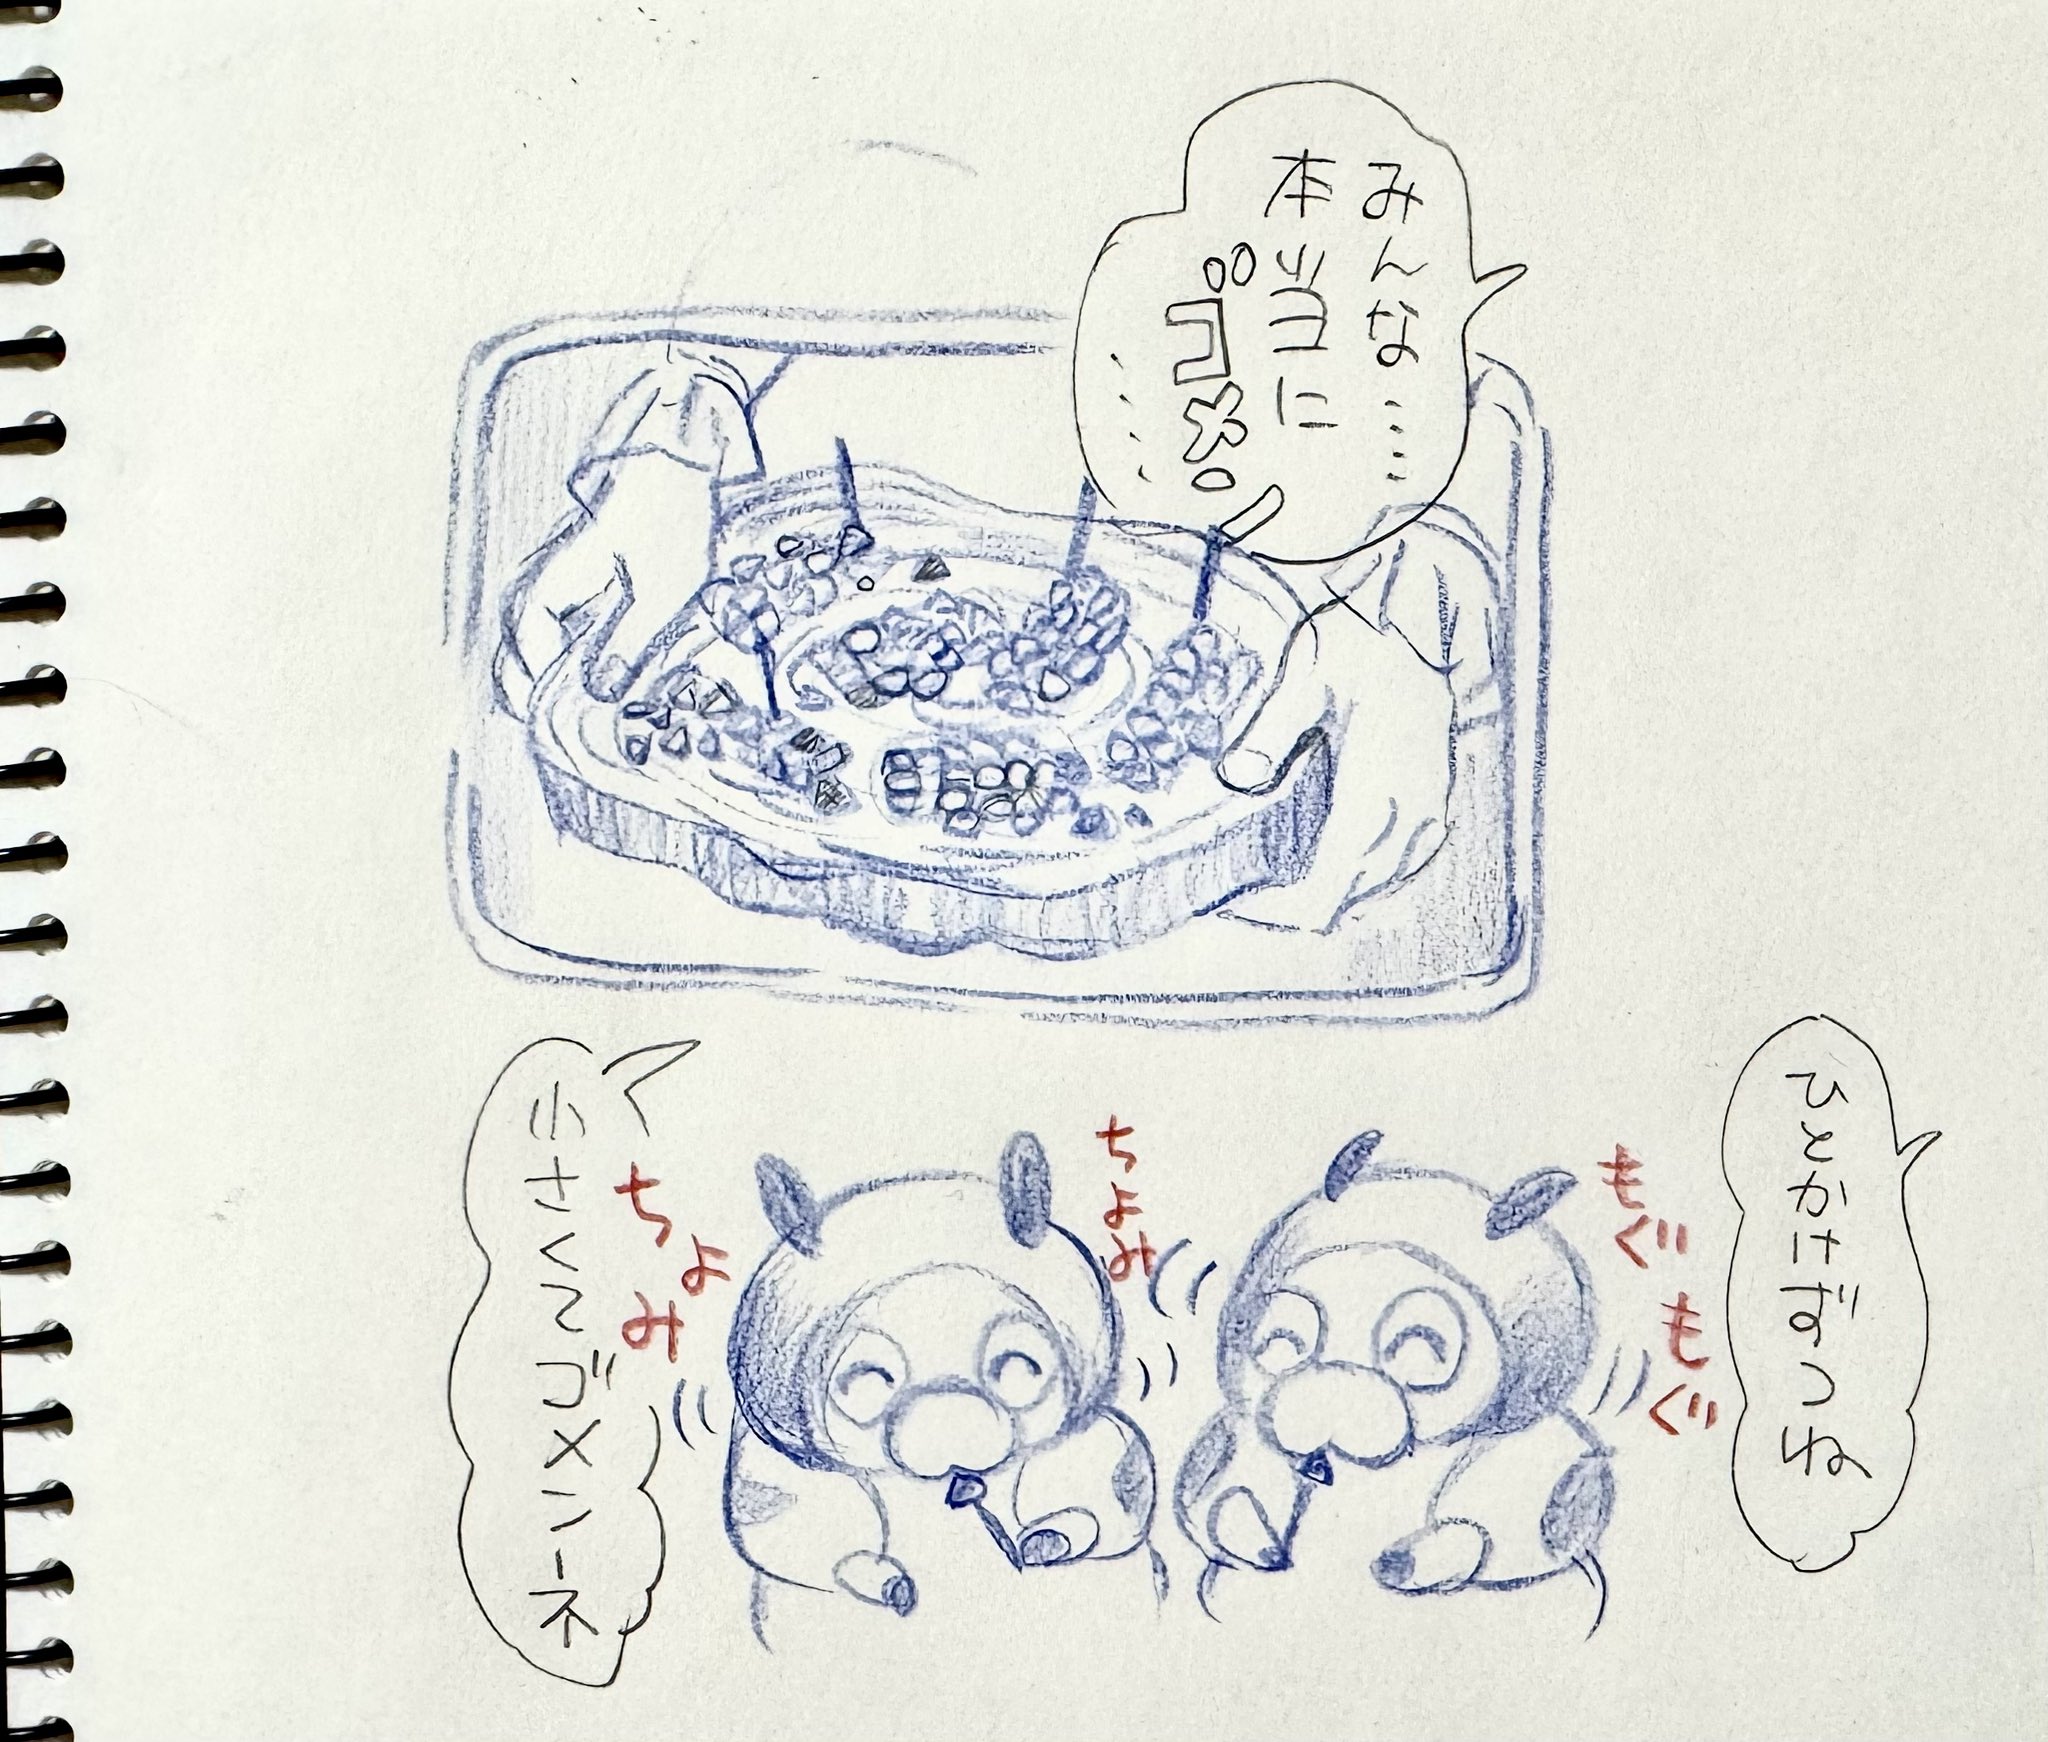 みんな……
本当に
ゴメン
……
ひとかさずつね
もぐ
もぐ
ちょみ
ちょみ
小さくてゴメンネ